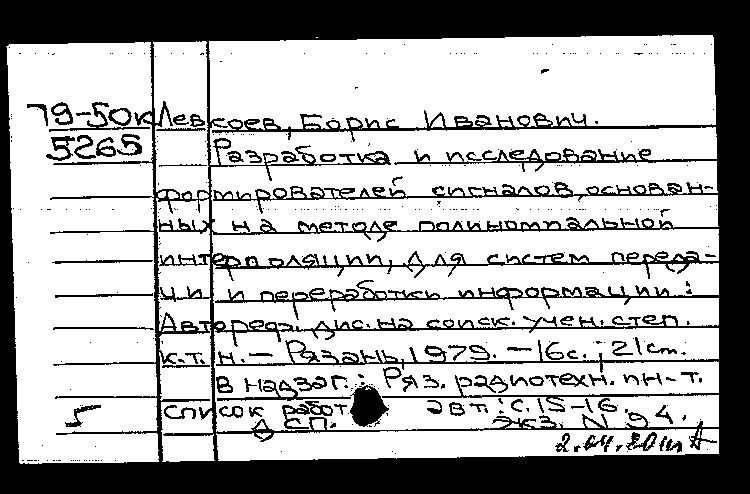 79-50к Левкоев, Борис Иванович.
5265 Разработка и исследование
формирователей сигналов, основан-
ных на методе полиномиальной
интерполяции, для систем переда-
чи и переработки информации:
Автореф. дис. на соиск. учен. степ.
к.т.н. – Рязань, 1979. – 16 с.; 21 см.
В надзаг.: Ряз. радиотехн. ин-т.
5 Список работ авт.: с. 15-16.
ДСП. Экз. N 94.
2.04.80